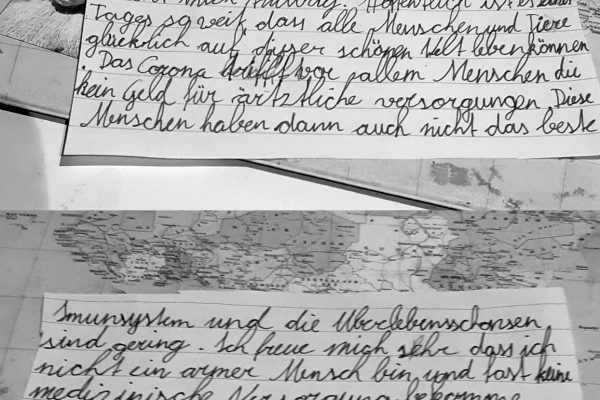 mich traurig. Hoffentlich ist es eines
Tages so weit dass alle Menschen und Tiere
glücklich auf dieser schönen Welt leben können
. Das Corona trifft vor allem Menschen die
kein Geld für ärtztliche versorgungen. Diese
Menschen haben dann auch nicht das beste
Imunsystem und die Uberlebensschansen
sind gering. Ich freue mich sehr dass ich
nicht ein armer Mensch bin und fast keine
medizinische Versorgung bekomme